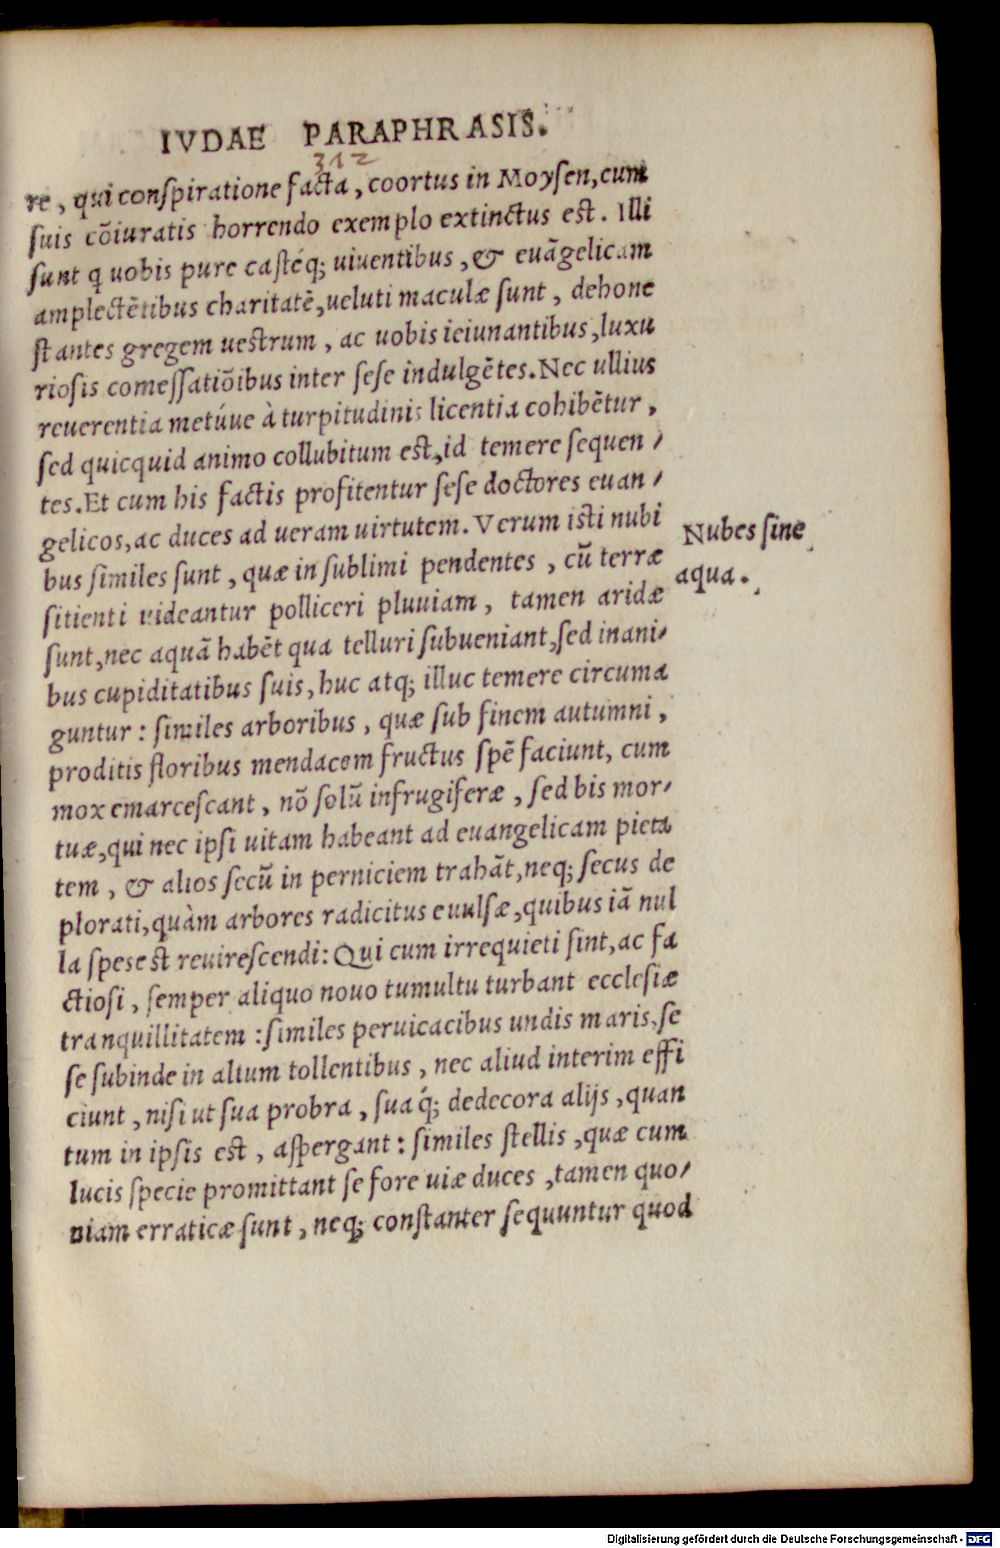 IVDAE PARAPHRASIS.
312
re, qui conſpiratione facta, coortus in Moyſen, cum
ſuis cõiuratis horrendo exemplo extinctus eſt. Illi
ſunt q uobis pure caſtéq; uiuentibus, & euãgelicam
amplectẽtibus charitatẽ, ueluti maculæ ſunt, dehone
ſtantes gregem ueſtrum, ac uobis ieiunantibus, luxu
rioſis comeſſatiõibus inter ſeſe indulgẽtes. Nec ullius
reuerentia metúue à turpitudinis licentia cohibẽtur,
ſed quicquid animo collubitum eſt, id temere ſequen⸗
tes. Et cum his factis profitentur ſeſe doctores euan⸗
gelicos, ac duces ad ueram uirtutem. Verum iſti nubi
bus ſimiles ſunt, quæ in ſublimi pendentes, cũ terræ
ſitienti uideantur polliceri pluuiam, tamen aridæ
ſunt, nec aquã habẽt qua telluri ſubueniant, ſed inani⸗
bus cupiditatibus ſuis, huc atq; illuc temere circuma
guntur: ſimiles arboribus, quæ ſub finem autumni,
proditis floribus mendacem fructus ſpẽ faciunt, cum
mox emarceſcant, nõ ſolũ infrugiferæ, ſed bis mor⸗
tuæ, qui nec ipſi uitam habeant ad euangelicam pieta
tem, & alios ſecũ in perniciem trahãt, neq; ſecus de
plorati, quàm arbores radicitus euulſæ, quibus iã nul
la ſpes eſt reuireſcendi: Qui cum irrequieti ſint, ac fa
ctioſi, ſemper aliquo nouo tumultu turbant eccleſiæ
tranquillitatem: ſimiles peruicacibus undis maris, ſe
ſe ſubinde in altum tollentibus, nec aliud interim effi
ciunt, niſi ut ſua probra, ſua q́; dedecora alijs, quan
tum in ipſis eſt, aſpergant: ſimiles ſtellis, quæ cum
lucis ſpecie promittant ſe fore uiæ duces, tamen quo⸗
niam erraticæ ſunt, neq; conſtanter ſequuntur quod
Nubes ſine
aqua.
Digitalisierung gefördert durch die Deutsche Forschungsgemeinschaft - DFG